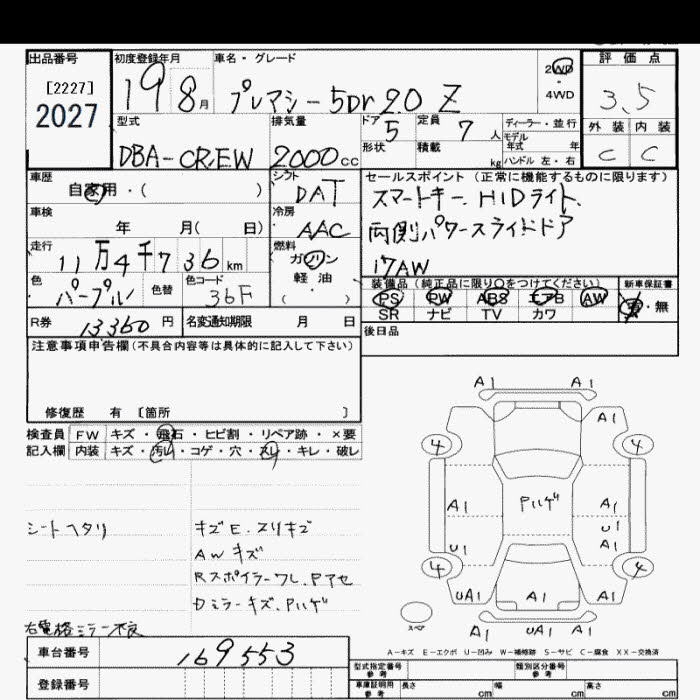 出品番号 初度登録年月 車名・グレード 評価点
[2227]
2027
19 8月 プレマシー5Dr 20 Z
2WD
・
4WD
3.5
外装 内装
C C
型式 排気量 ドア 定員 ディーラー・並行
DBA-CREW 2000cc 5 7人
モデル年式 年
形状 積載 kg ハンドル 左・右
車歴 自家用・( )
シフト DAT
セールスポイント(正常に機能するものに限ります)
スマートキー. HIDライト.
両側パワースライドドア
17AW
車検 年 月( 日)
冷房 AAC
走行 11万4千736km
燃料 ガソリン
軽・油
( )
色 パープル 色替 色コード 36F
装備品(純正品に限り〇をつけてください) 新車保証書
PS PW ABS エアB AW 有・無
SR ナビ TV カワ
R券 13360円 名変通知期限 月 日
後日品
注意事項申告欄(不具合内容等は具体的に記入して下さい)
修復歴 有〔箇所 〕
検査員 FW キズ・飛石・ヒビ割・リペア跡・×要
記入欄 内装 キズ・汚れ・コゲ・穴・スレ・キレ・破レ
シートヘタリ
キズE.スリキズ
AWキズ
RスポイラーワレPアセ
DミラーキズPハゲ
右電格ミラー不良
A1 A1
A1
4 4
Pハゲ
A1 A1
U1
U1 A1
4 4
UA1 A1 A1
スペア
A1 UA1 A1
A-キズ E-エクボ U-凹み W-補修跡 S-サビ C-腐食 XX-交換済
車台番号 169553
登録番号
型式指定番号 参考 類別区分番号 参考
車庫証明用 参考 長さ cm 幅 cm 高さ cm